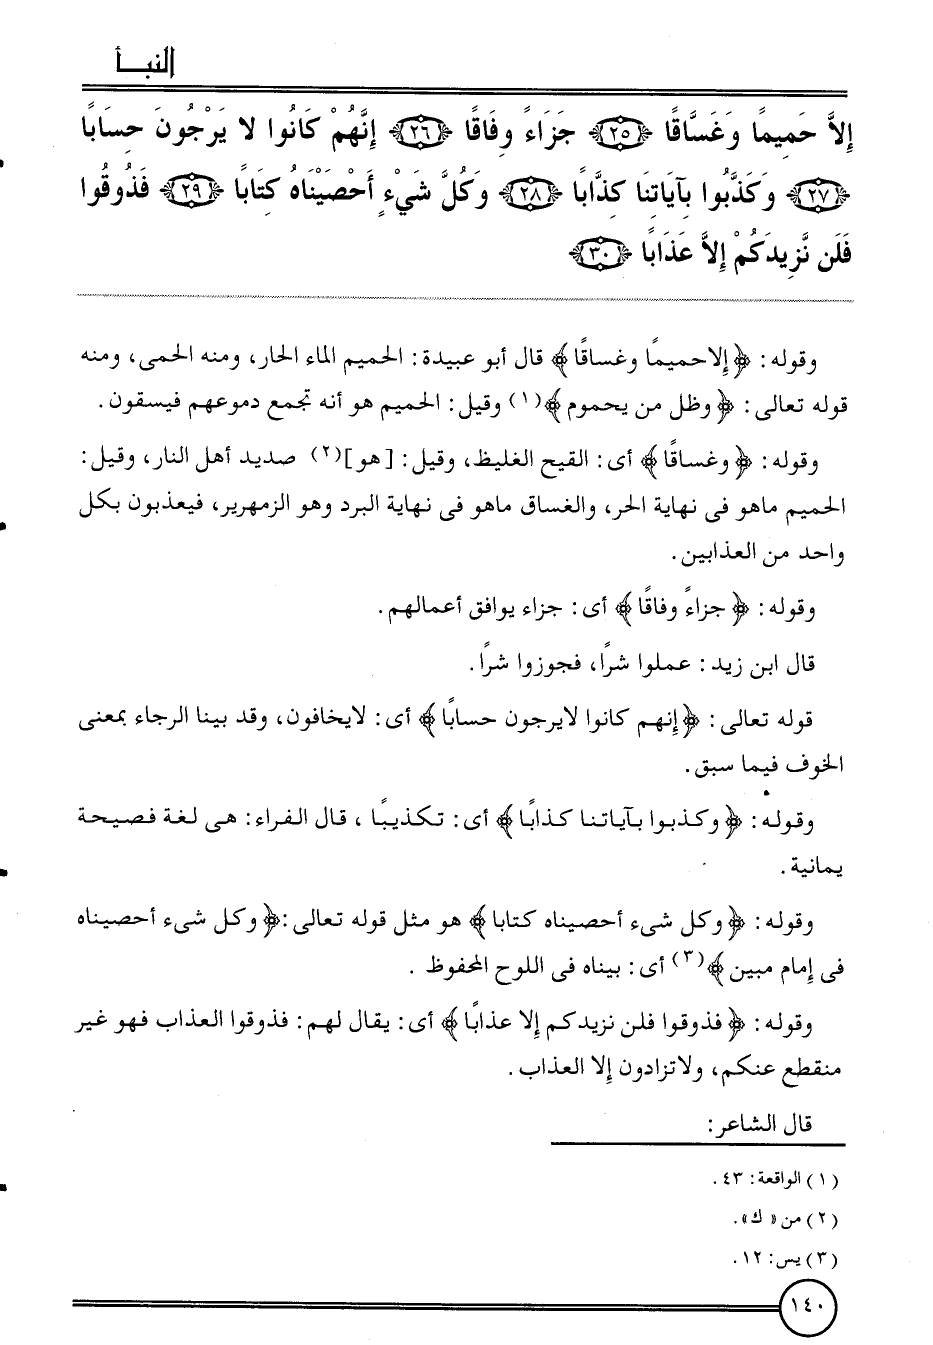 النبأ
إِلاَّ حَمِيمًا وَغَسَّاقًا ﴿٢٥﴾ جَزَاءً وِفَاقًا ﴿٢٦﴾ إِنَّهُمْ كَانُوا لا يَرْجُونَ حِسَابًا
﴿٢٧﴾ وَكَذَّبُوا بِآيَاتِنَا كِذَّابًا ﴿٢٨﴾ وَكُلَّ شَيْءٍ أَحْصَيْنَاهُ كِتَابًا ﴿٢٩﴾ فَذُوقُوا
فَلَن نَّزِيدَكُمْ إِلاَّ عَذَابًا ﴿٣٠﴾
وقوله: ﴿إلاحميمًا وغساقًا﴾ قال أبو عبيدة: الحميم الماء الحار، ومنه الحمى، ومنه
قوله تعالى: ﴿وظل من يحموم﴾(١) وقيل: الحميم هو أنه تجمع دموعهم فيسقون.
وقوله: ﴿وغساقًا﴾ أى: القيح الغليظ، وقيل: [هو](٢) صديد أهل النار، وقيل:
الحميم ماهو فى نهاية الحر، والغساق ماهو فى نهاية البرد وهو الزمهرير، فيعذبون بكل
واحد من العذابين.
وقوله: ﴿جزاءً وفاقًا﴾ أى: جزاء يوافق أعمالهم.
قال ابن زيد: عملوا شرًا، فجوزوا شرًا.
قوله تعالى: ﴿إنهم كانوا لايرجون حسابًا﴾ أى: لايخافون، وقد بينا الرجاء بمعنى
الخوف فيما سبق.
وقوله: ﴿وكذبوا بآياتنا كذابًا﴾ أى: تكذيبًا ، قال الفراء: هى لغة فصيحة
يمانية.
وقوله: ﴿وكل شىء أحصيناه كتابا﴾ هو مثل قوله تعالى:﴿وكل شىء أحصيناه
فى إمام مبين﴾(٣) أى: بيناه فى اللوح المحفوظ .
وقوله: ﴿فذوقوا فلن نزيدكم إلا عذابًا﴾ أى: يقال لهم: فذوقوا العذاب فهو غير
منقطع عنكم، ولاتزادون إلا العذاب.
قال الشاعر:
(١) الواقعة: ٤٣.
(٢) من «ك».
(٣) يس: ١٢.
١٤٠